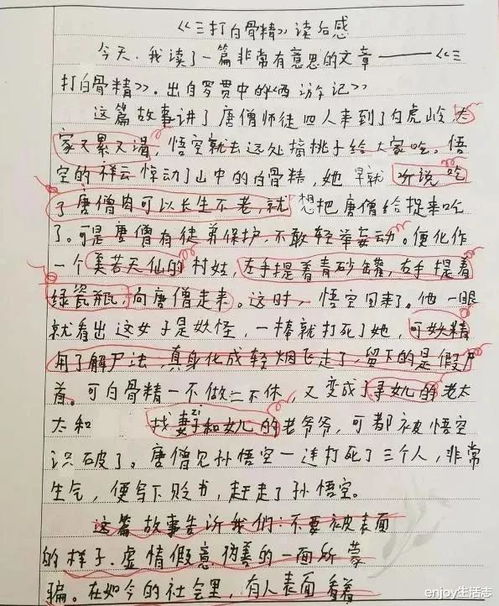 《三打白骨精》读后感
今天,我读了一篇非常有意思的文章——《三
打白骨精》.出自罗贯中的《西游记》
这篇故事讲了唐僧师徒四人来到了白虎岭,大
家又累又渴,悟空就去远处摘桃子给大家吃。悟
空的祥云惊动了山中的白骨精,她早就听说吃
了唐僧肉可以长生不老,就想把唐僧给捉来吃
了。可是唐僧有徒弟保护,不敢轻举妄动。便化作
一个美若天仙的村姑,左手提着青砂罐,右手提着
绿瓷瓶,向唐僧走来。这时,悟空回来了。他一眼
就看出这女子是妖怪,一棒就打死了她,可妖精
用了解尸法,真身化成轻烟飞走了,留下的是假尸
首。可白骨精一不做二不休,又变成了寻女儿的老太
太和 找妻子和女儿的老爷爷,可都被悟空
识破了。唐僧见孙悟空一连打死了三个人,非常
生气,便写下贬书,赶走了孙悟空。
这篇故事告诉我们:不要被表面
的样子、虚情假意伪善的一面所蒙
骗。在如今的社会里,有人表面看着
enjoy生活志